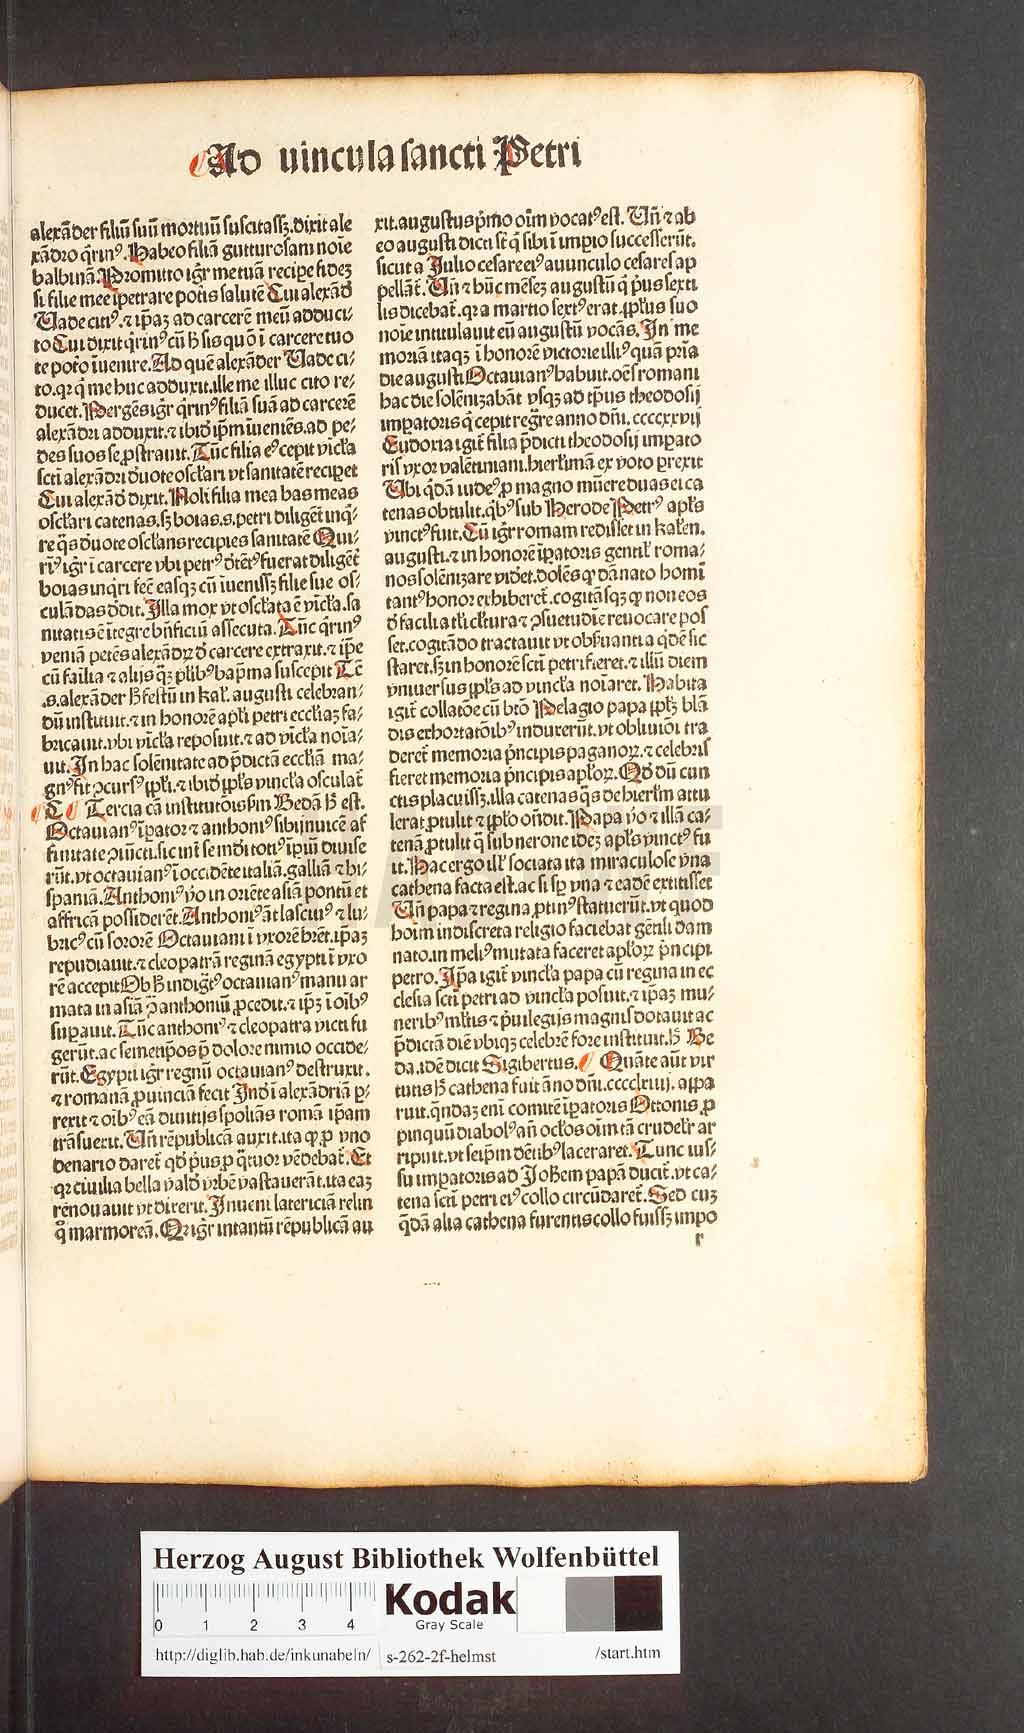 Ad uincula sancti Petri
alexāder filiū suū mortuū suscitassꝫ. dixit ale
xādro q̄rinꝰ. Habeo filiā gutturosam noīe
balbinā. Promitto igr̄ me tuā recipe fideꝫ
si filie mee īpetrare potis salutē Cui alexād̄
Uade citiꝰ. ⁊ ip̄aꝫ ad carcerē meū adduci⸗
to Cui dixit q̄rinꝰ cū ꝉ sis quō ī carcere tuo
te poto ̇īuenire. Ad quē alexāder Uade ci⸗
to. qꝛ q̄ me huc adduxit. ille me illuc cito re⸗
ducet. Pergēs igr̄ q̄rinꝰ filiā suā ad carcerē
alexādri adduxit. ⁊ ibid̄ ip̄m īueniēs. ad pe⸗
des suos se ꝓstrauit. Tūc filia eꝰ cepit vīcl̄a
sctī alexādri d̄uote oscl̄ari vt sanitatē recipet
Cui alexād̄ dixit. Noli filia mea has meas
oscl̄ari catenas. sꝫ boias. s. petri diligēt inq̄⸗
re q̄s d̄uote oscl̄ans recipies sanitatē Qui⸗
rīꝰ igr̄ ī carcere vbi petrꝰ d̄tētꝰ fuerat diligēt
boias inq̄ri fec̄ easqꝫ cū īuenissꝫ filie sue os⸗
culādas d̄dit. Illa mox vt oscl̄ata ē vīcl̄a. sa
nitatis ē itegre bn̄ficiū assecuta. Tūc q̄rinꝰ
veniā petēs alexādꝝ d̄ carcere extraxit. ⁊ ip̄e
cū fa̅ilia ⁊ alijs qꝫ pl̄ibꝰ bap̄ma suscepit Tē
.s. alexāder ꝉ festū in kal̄. augusti celebran⸗
dū instituit. ⁊ in honorē apl̄i petri eccl̄iaꝫ fa⸗
bricauit. vbi vīcl̄a reposuit. ⁊ ad vīcl̄a noīa⸗
uit. In hac solēnitate ad p̄dictā eccl̄iā ma⸗
gnꝰ fit ꝯcursꝰ ppl̄i. ⁊ ibid̄ ppl̄s vincl̄a osculat̄
C Tercia cā institutōis fm̄ Bedā ꝉ est.
Octauianꝰ īpator ⁊ anthoniꝰ sibijnuicē af
finitate ꝯiūcti. sic int̄ se mōi totiꝰ īpiū diuise
rūt. vt octauianꝰ ī occidēte italiā. galliā ⁊ hi⸗
spaniā. Anthoniꝰ v̄o in oriēte asiā pontū et
affricā possiderēt. Anthoniꝰ āt lasciuꝰ ⁊ lu⸗
bricꝰ cū sororē Octauiani ī vxorē h̄rēt. ip̄aꝫ
repudiauit. ⁊ cleopatrā reginā egypti ī vxo
rē accepit Ob ꝉ indigt̄ꝰ octauianꝰ manu ar
mata in asiā ꝯ̄ anthoniū ꝓcedit. ⁊ ip̄ꝫ ī oībꝰ
supauit. Tūc anthoniꝰ ⁊ cleopatra victi fu
gerūt. ac semetip̄os p̄ dolore nimio occide⸗
rūt. Egypti igr̄ regnū octauianꝰ destruxit.
⁊ romanā ꝓuinciā fecit Ind̄ ī alexādriā ꝑ⸗
rexit ⁊ oībꝰ eā diuitijs spoliās romā ip̄am
trāsuexit. Uñ rēpublicā auxit. ita qꝙ ꝓ vno
denario daret̄ qd̄ p̄us. ꝓ q̄tuor vēdebat̄. Et
qꝛ ciuilia bella vald̄ vrbē vastauerāt. ita eaꝫ
renouauit vt dixerit. Inueni latericiā relin
qͦ marmoreā. Q: igr̄ intantū rēpublicā au
xit. augustus p̄mo oīm vocatꝰ est. Uñ ⁊ ab
eo augusti dicti sēt q̄ sibi ī impio successerūt.
sicut a Julio cesare eiꝰ auunculo cesares ap
pellāt̄. Uñ ⁊ hūc mēseꝫ augustū q̄ p̄us sexti
lis dicebat̄. qꝛ a martio sextꝰ erat. ppl̄us suo
noīe intitulauit eū augustū vocās. In me
moriā itaqꝫ ī honorē victorie illiꝰ quā prīa
die augusti Octauianꝰ habuit. oēs romani
hac die solēnizabāt vsqꝫ ad tp̄us theodosij
impatoris q̄ cepit regr̄e anno dn̄i. ccccxxvij
Eudoria igit̄ filia p̄dicti theodosij impato
ris vxor valētiniani. hierl̄imā ex voto prexit
Ubi q̄dā iudeꝰ ꝓ magno mūere duas ei ca
tenas obtulit. qͥbꝰ sub Herode Petrꝰ apl̄s
vinctꝰ fuit. Cū igr̄ romam redisset in kalen̄.
augusti. ⁊ in honorē īpatoris gentil̄ roma⸗
nos solēnizare videt. dolēs qꝙ dānato homī
tantꝰ honor exhiberet̄. cogitās qꝫ qꝙ non eos
d̄ facili a tl̄i cl̄tura ⁊ ꝯsuetudīe reuocare pos
set. cogitādo tractauit vt obsr̄uantia qdē sic
staret. sꝫ in honorē sctī petri fieret. ⁊ illū diem
vniuersus ppl̄s ad vincl̄a noīaret. Habita
igit̄ collatōe cū btō Pelagio papa ppl̄ꝫ blā
dis exhortatōibꝰ induxerūt. vt obliuiōi tra
deret̄ memoria p̄ncipis paganoꝝ. ⁊ celebris
fieret memoria p̄ncipis apl̄oꝝ. Qd̄ dū cun
ctis placuissꝫ. illa catenas q̄s de hierl̄m attu
lerat ꝓtulit ⁊ ppl̄o on̄dit. Papa v̄o ⁊ illā ca⸗
tenā ꝓtulit q̄ sub nerone ideꝫ apl̄s vinctꝰ fu
it. Hac ergo ill̄ sociata ita miraculose vna
cathena facta est. ac si sp̄ vna ⁊ eadē extitisset
Uñ papa ⁊ regina ꝓtinꝰ statuerūt. vt quod
hoīm indiscreta religio faciebat gētili dam
nato. in meliꝰ mutata faceret apl̄oꝝ p̄ncipi
petro. Ip̄a igit̄ vincl̄a papa cū regina in ec
clesia sctī petri ad vincl̄a posuit. ⁊ ip̄aꝫ mu⸗
neribꝰ ml̄tis ⁊ p̄uilegijs magnis dotauit ac
p̄dictā diē vbiqꝫ celebrē fore instituit. ꝉ Be
da. idē dicit Sigibertus. Quāte aūt vir
tutis ꝉ cathena fuit āno dn̄i. cccclxiiij. appa
ruit. q̄ndaꝫ enī comitē īpatoris Ottonis ꝓ
pinquū diabolꝰ añ ocl̄os oīm tā crudelr̄ ar
ripuit. vt seip̄m dētibꝰ laceraret. Tunc ius⸗
su impatoris ad Johēm papā ducit̄. vt ca⸗
tena sctī petri eiꝰ collo circūdaret̄. Sed cuꝫ
q̄dā alia cathena furentis collo fuissꝫ impo
r
Herzog August Bibliothek Wolfenbüttel
0 1 2 3 4
Kodak
Gray Scale
http://diglib.hab.de/inkunabeln/ s-262-2f-helmst /start.htm